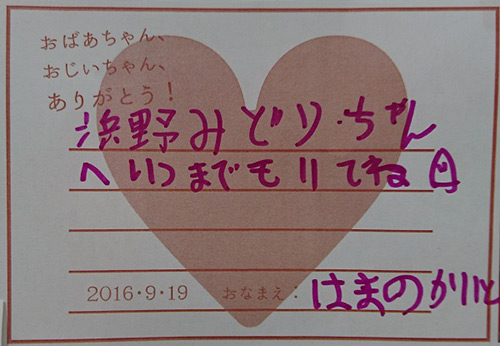 おばあちゃん、
おじいちゃん、
ありがとう！
浜野みどり・ちゃん
へいつまでもいてね
2016・9・19 おなまえ：はまのかりん